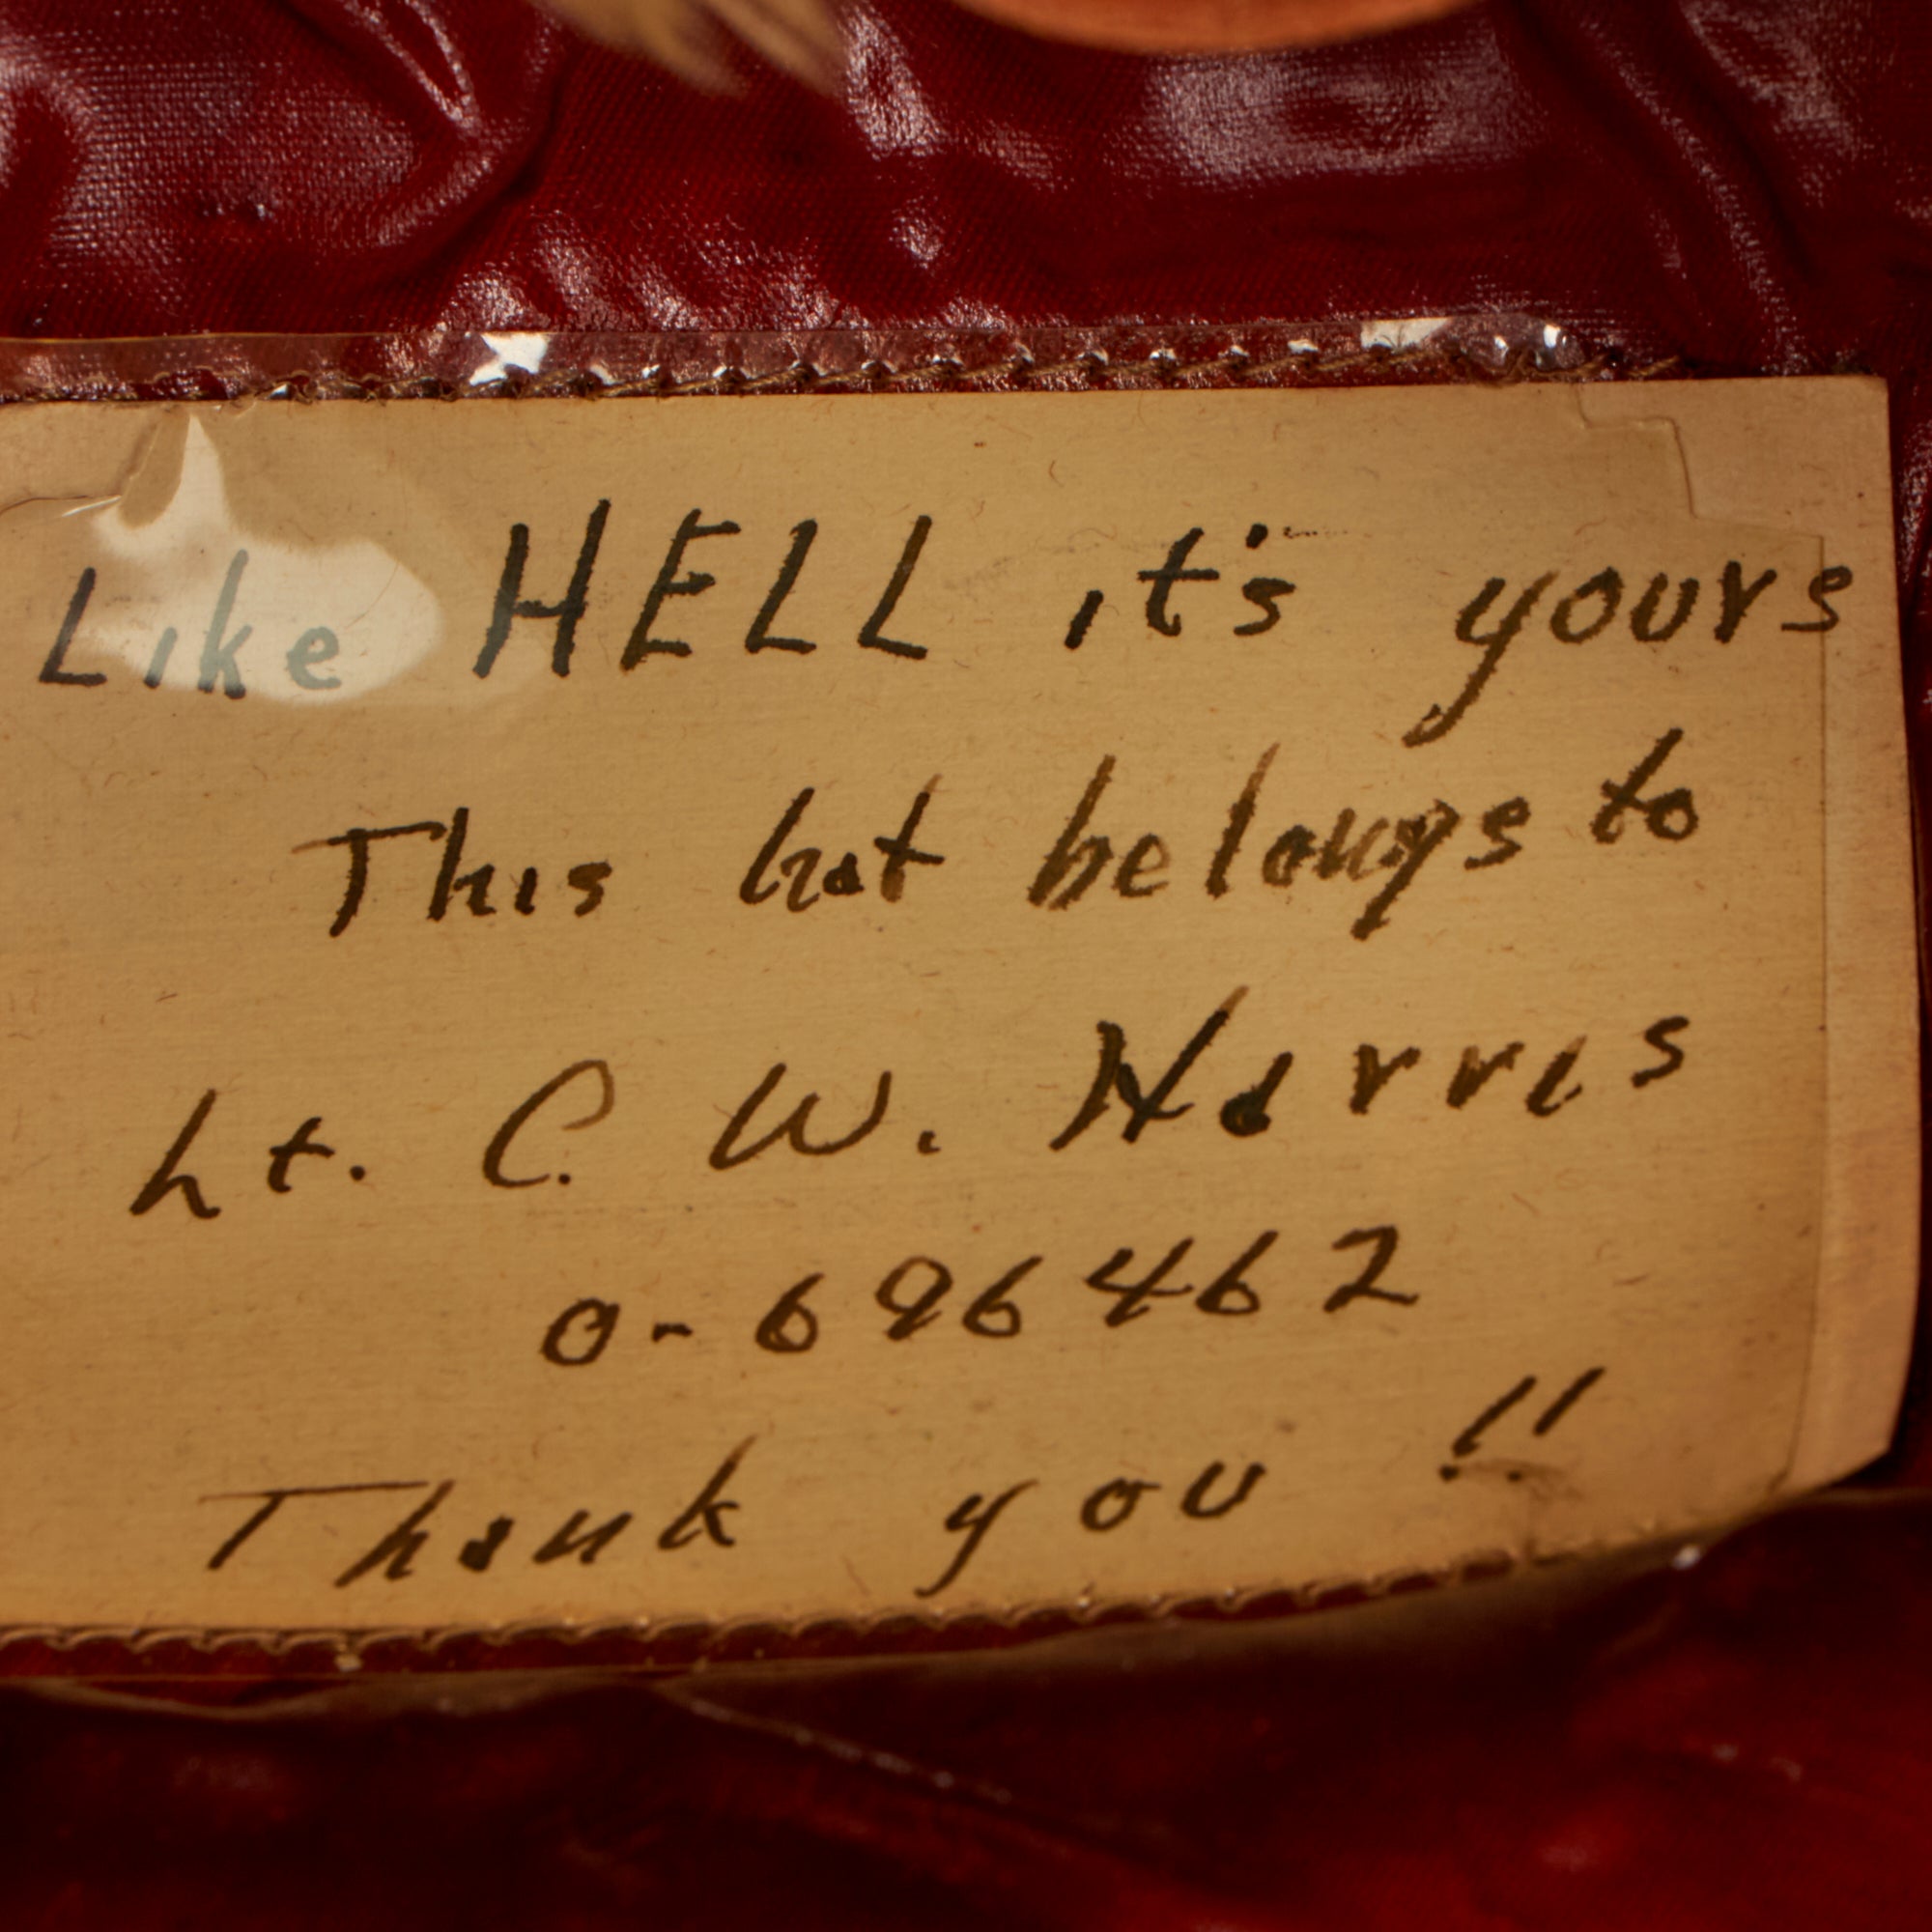 Like HELL it's yours
This hat belongs to
Lt. C. W. Harris
0-696462
Thank you !!